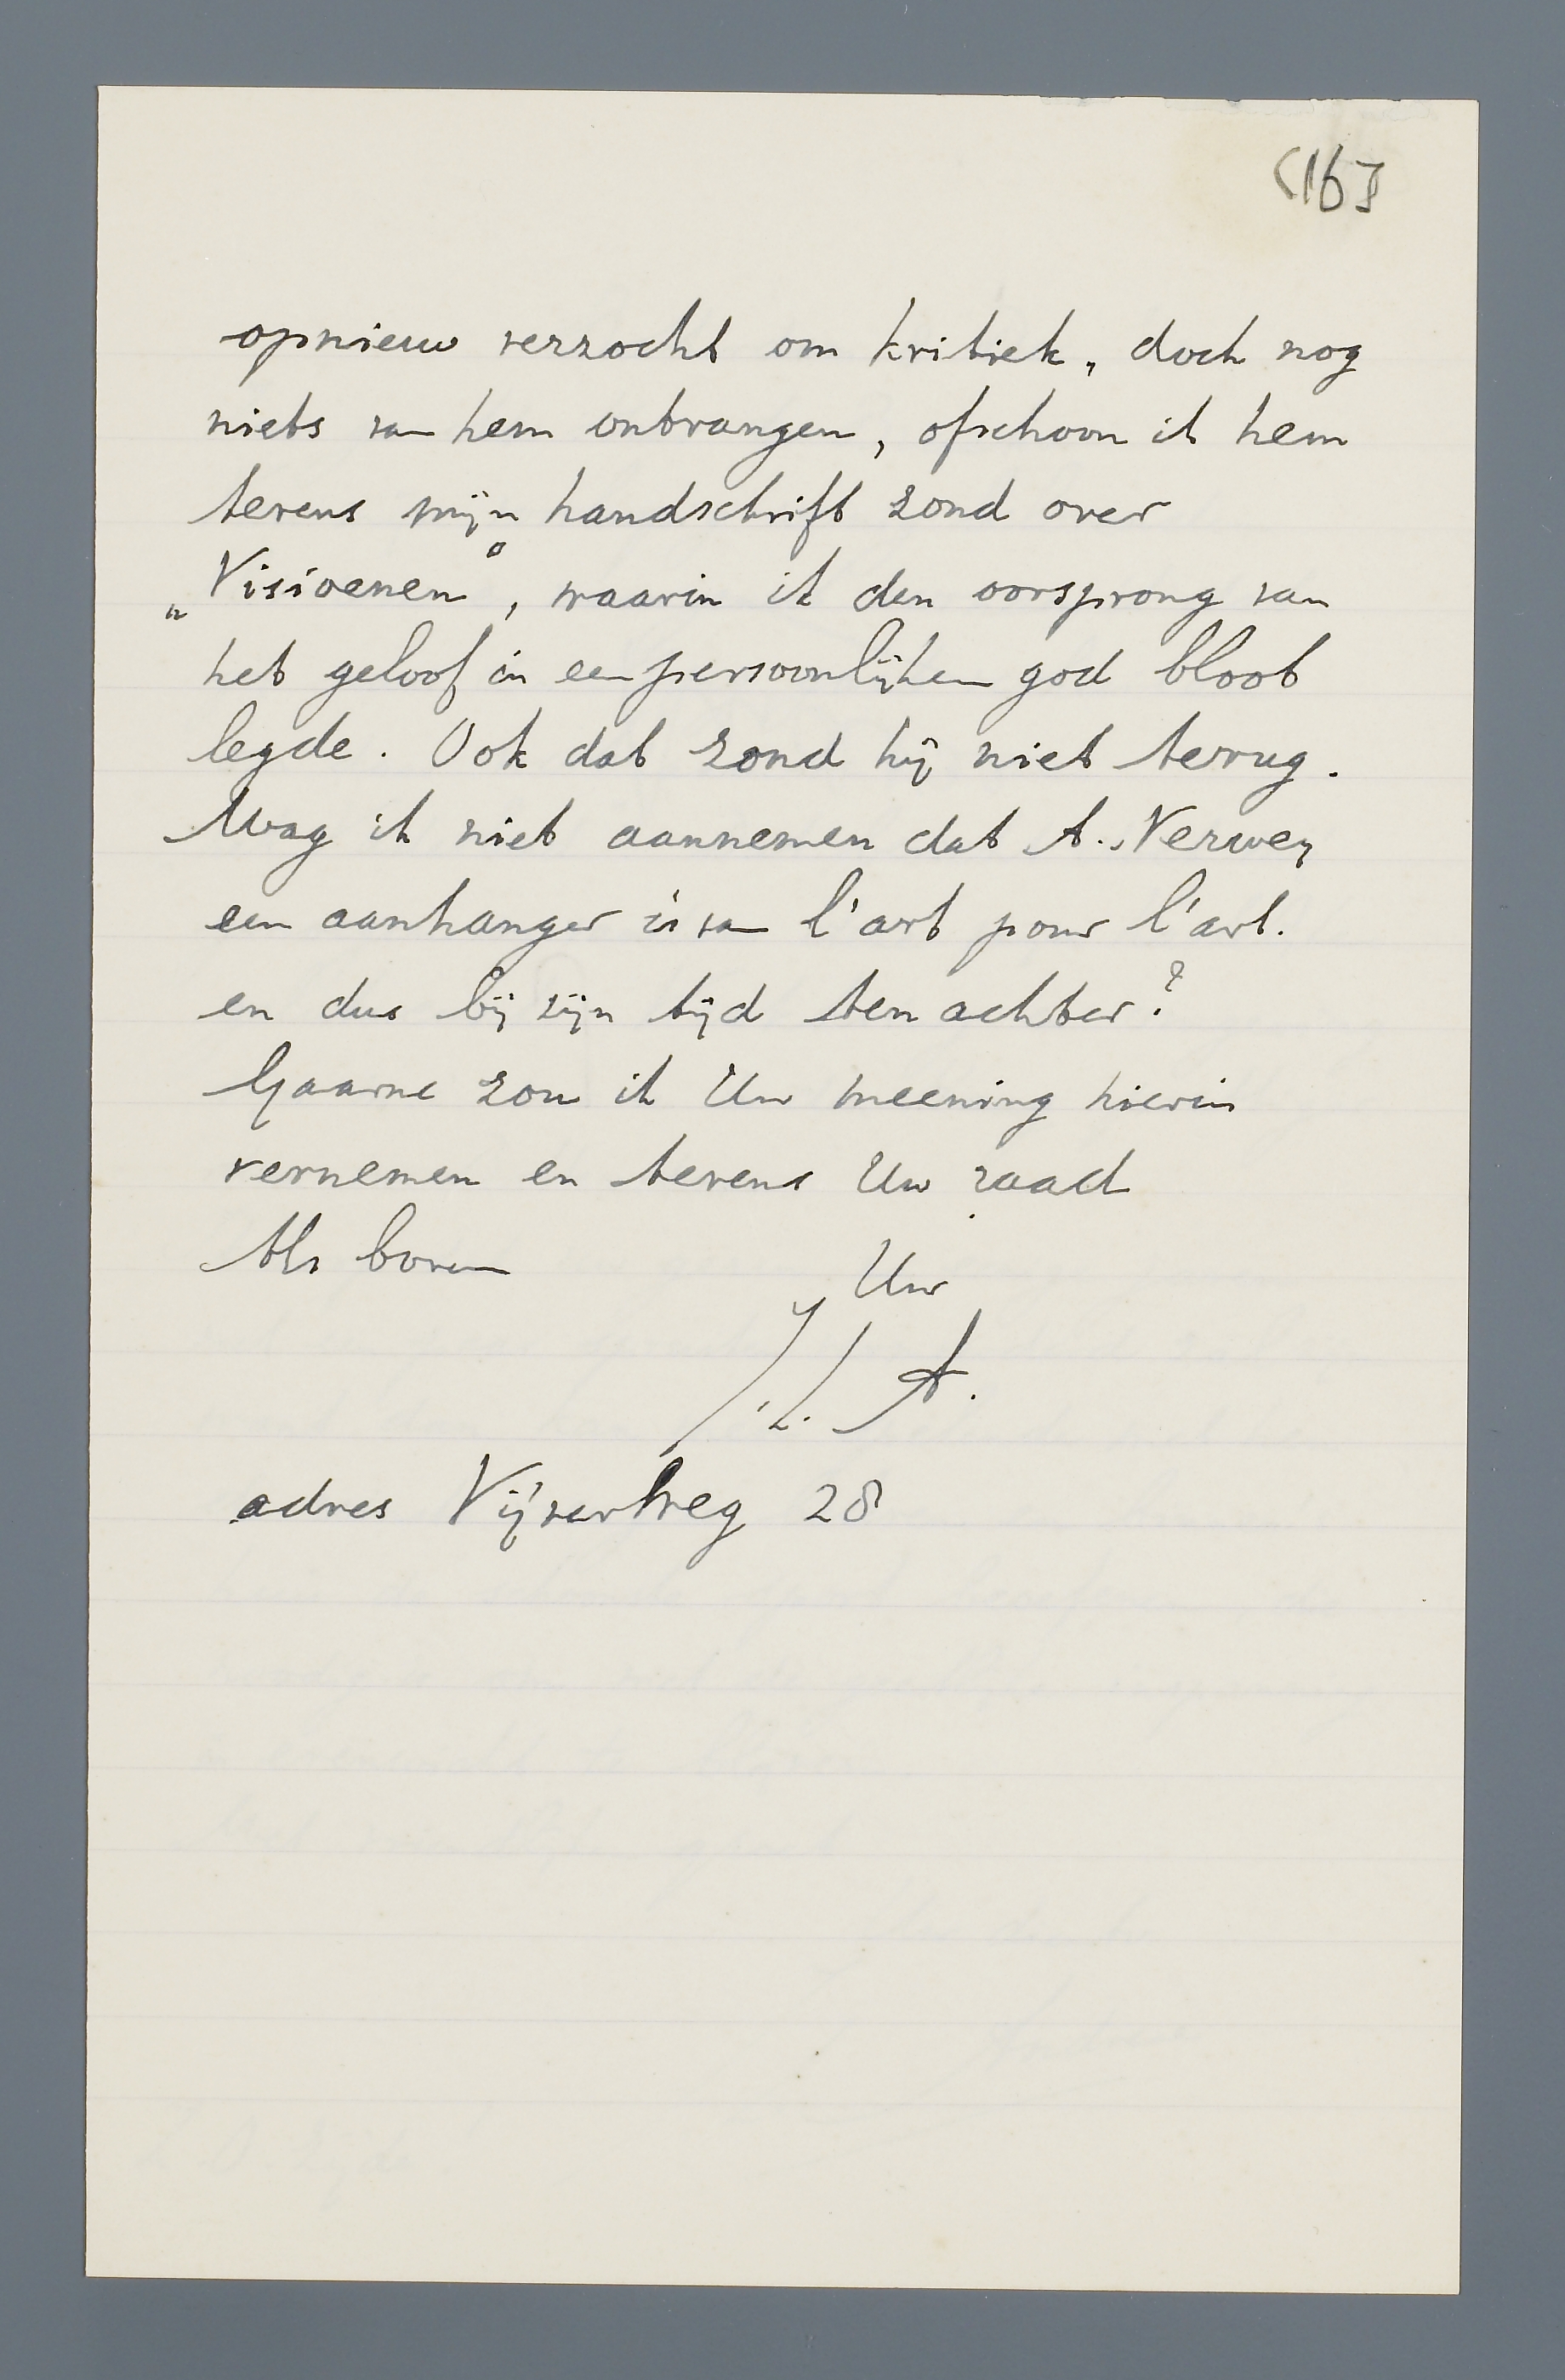 opnieuw verzocht om kritiek, doch nog
niets van hem ontvangen, ofschoon ik hem
tevens mijn handschrift zond over
„Visioenen", waarin ik den oorsprong van
het geloof in een persoonlijken god bloot
legde. Ook dat zond hij niet terug.
Mag ik niet aannemen dat A. Verwey
een aanhanger is van l'art pour l'art.
en dus bij zijn tijd ten achter?
Gaarne zou ik Uw meening hierin
vernemen en tevens Uw raad
Als boven
Uw
A.
adres Vijverweg 28